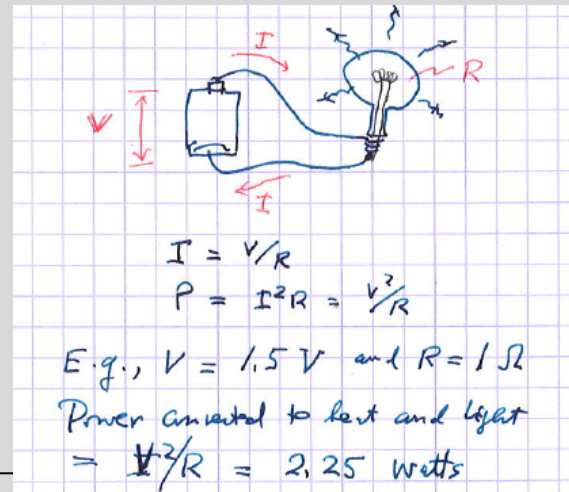 I
R
V
I
I = V/R
P = I²R = V²/R
E.g., V = 1.5 V and R = 1 Ω
Power converted to heat and light
= V²/R = 2.25 watts